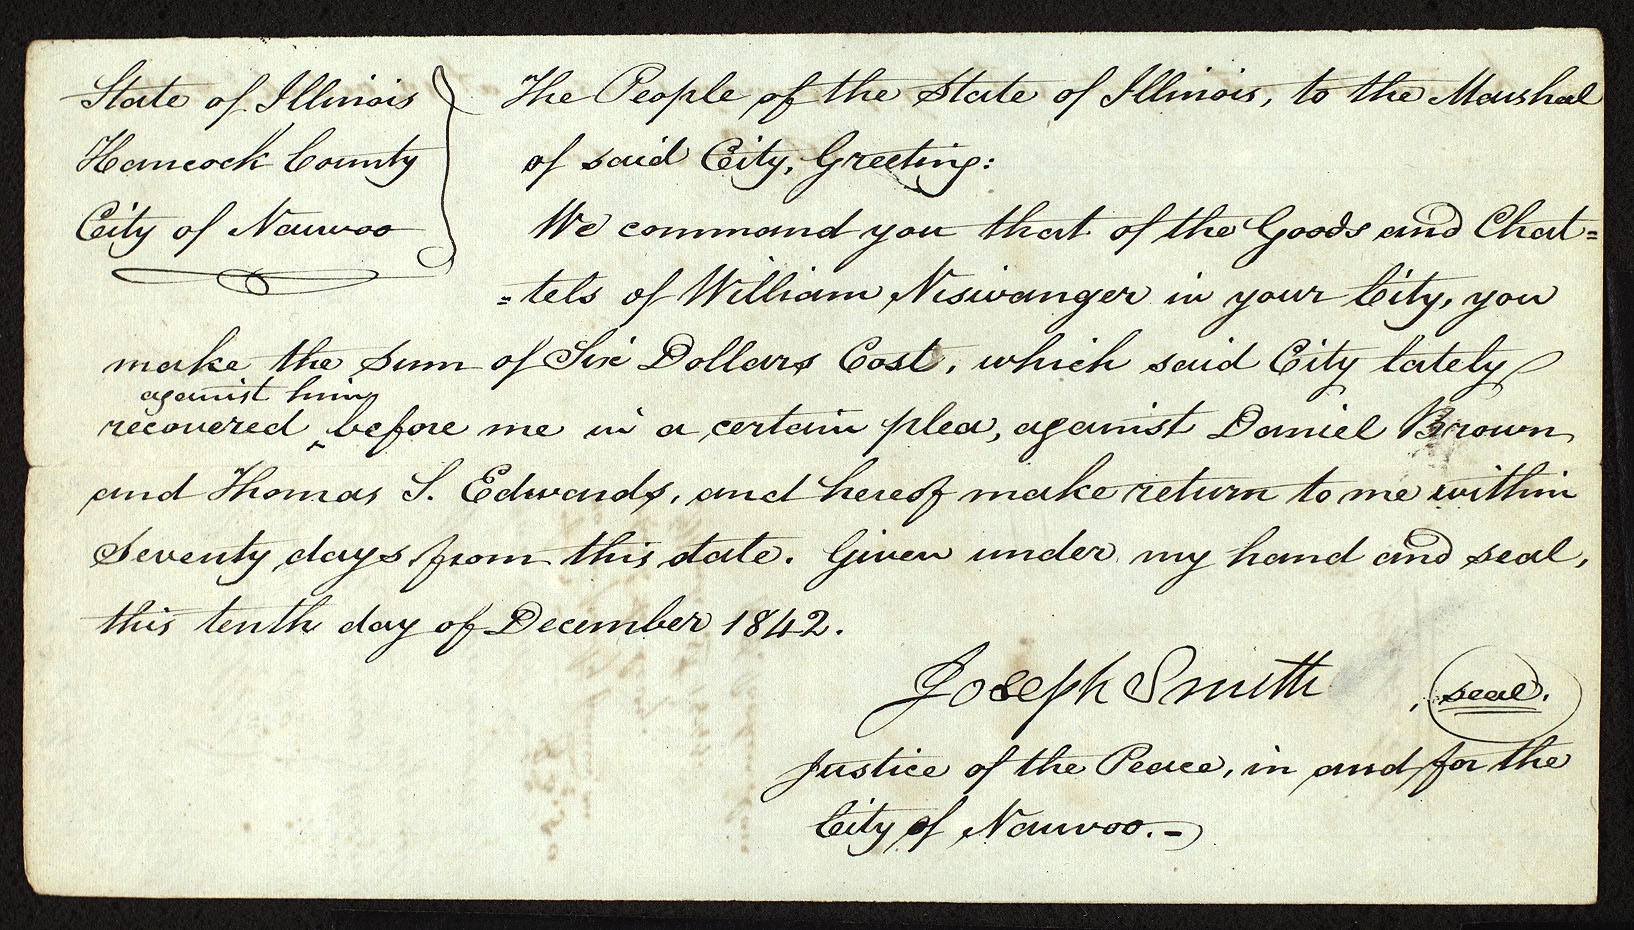 State of Illinois
Hancock County
City of Nauvoo
The People of the State of Illinois, to the Marshal
of said City, Greeting:
We command you that of the Goods and Chat=
=tels of William Niswanger in your City, you
make the sum of Six Dollars Cost, which said City lately
against him
recovered ‸ before me in a certain plea, against Daniel Brown
and Thomas S. Edwards, and hereof make return to me within
Seventy days from this date. Given under my hand and seal,
this tenth day of December 1842.
Joseph Smith seal.
Justice of the Peace, in and for the
City of Nauvoo.-